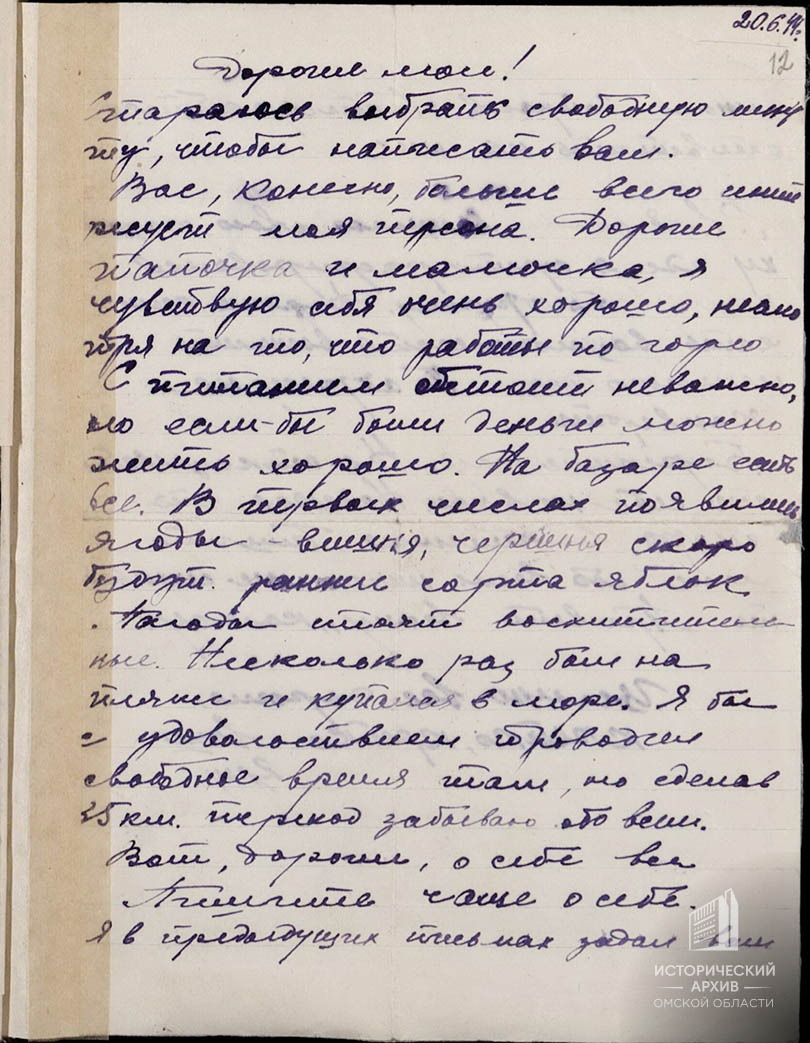 20.6.44г.
12
Дорогие мои!
Стараюсь выбрать свободную мину
ту, чтобы написать вам.
Вас, конечно, больше всего инте
ресует моя персона. Дорогие
папочка и мамочка, я
чувствую себя очень хорошо, несмо
тря на то, что работы по горло
С питанием обстоит неважно,
но если-бы были деньги можно
жить хорошо. На базаре есть
всё. В первых числах появились
ягоды - вишня, черешня скоро
будут ранние сорта яблок
Погоды стоят восхититель
ные. Несколько раз был на
пляже и купался в море. Я бы
с удовольствием проводил
свободное время там, но сделав
25 км. переход забываю обо всем.
Вот, дорогие, о себе все
Пишите чаще о себе.
Я в предыдущих письмах задал вам
ИСТОРИЧЕСКИЙ
АРХИВ
ОМСКОЙ ОБЛАСТИ